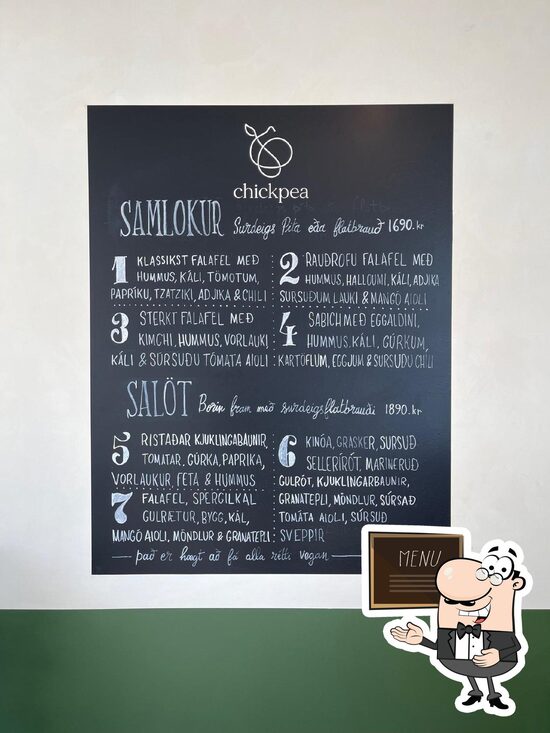 chickpea
SAMLOKUR Surdeigs Pita eða flatbrauð 1690.kr
1 KLASSÍKST FALAFEL MEÐ
HUMMUS, KÁLI, TÓMÖTUM,
PAPRÍKU, TZATZIKI, ADJIKA & CHILI
2 RAUÐRÓFU FALAFEL MEÐ
HUMMUS, HALLOUMI, KÁLI, ADJIKA
SÚRSUÐUM LAUKI & MANGÓ AIOLI
3 STERKT FALAFEL MEÐ
KIMCHI, HUMMUS, VORLAUKI,
KÁLI & SÚRSUÐU TÓMATA AIOLI
4 SABICH MEÐ EGGALDINI,
HUMMUS, KÁLI, GÚRKUM,
KARTÖFLUM, EGGJUM & SÚRSUÐU CHILI
SALÖT Borin fram með surdeigsflatbrauði 1890.kr
5 RISTAÐAR KJÚKLINGABAUNIR,
TÓMATAR, GÚRKA, PAPRIKA,
VORLAUKUR, FETA & HUMMUS
6 KINÓA, GRASKER, SÚRSUÐ
SELLERÍRÓT, MARINERUÐ
GULRÓT, KJÚKLINGABAUNIR,
GRANATEPLI, MÖNDLUR, SÚRSAÐ
TÓMATA AIOLI, SÚRSUÐ
SVEPPIR
7 FALAFEL, SPERGILKÁL
GULRÆTUR, BYGG, KÁL,
MANGÓ AIOLI, MÖNDLUR & GRANATEPLI
það er hægt að fá alla rétti vegan
MENU